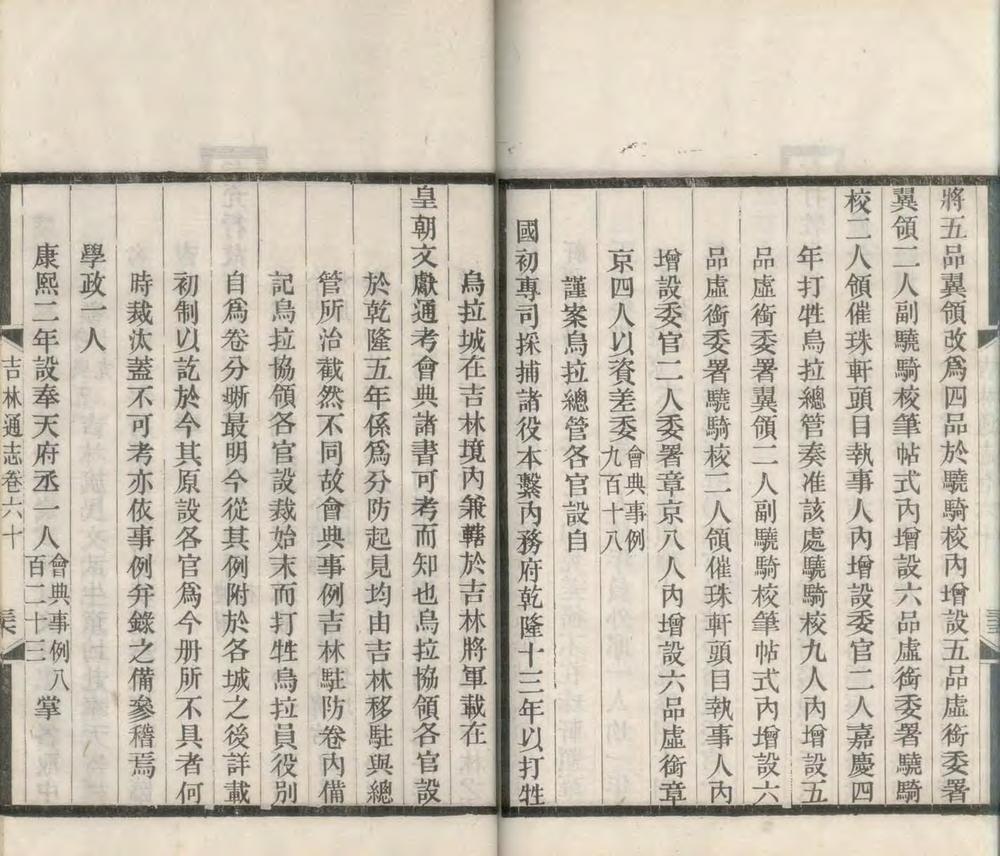 將五品翼領改爲四品於驍騎校內增設五品虛銜委署
翼領二人副驍騎校筆帖式內增設六品虛銜委署驍騎
校二人領催珠軒頭目執事人內增設委官二人嘉慶四
年打牲烏拉總管奏准該處驍騎校九人內增設五
品虛銜委署翼領二人副驍騎校筆帖式內增設六
品虛銜委署驍騎校二人領催珠軒頭目執事人內
增設委官二人委署章京八人內增設六品虛銜章
京四人以資差委會典事例九百十八
謹案烏拉總管各官設自
國初專司採捕諸役本繫內務府乾隆十三年以打牲
烏拉城在吉林境內兼轄於吉林將軍載在
皇朝文獻通考會典諸書可考而知也烏拉協領各官設
於乾隆五年係爲分防起見均由吉林移駐與總
管所治截然不同故會典事例吉林駐防卷內備
記烏拉協領各官設裁始末而打牲烏拉員役別
自爲卷分晰最明今從其例附於各城之後詳載
初制以訖於今其原設各官爲今册所不具者何
時裁汰蓋不可考亦依事例弁錄之備參稽焉
學政一人
康熙二年設奉天府丞一人會典事例八百二十三掌
吉林通志卷六十